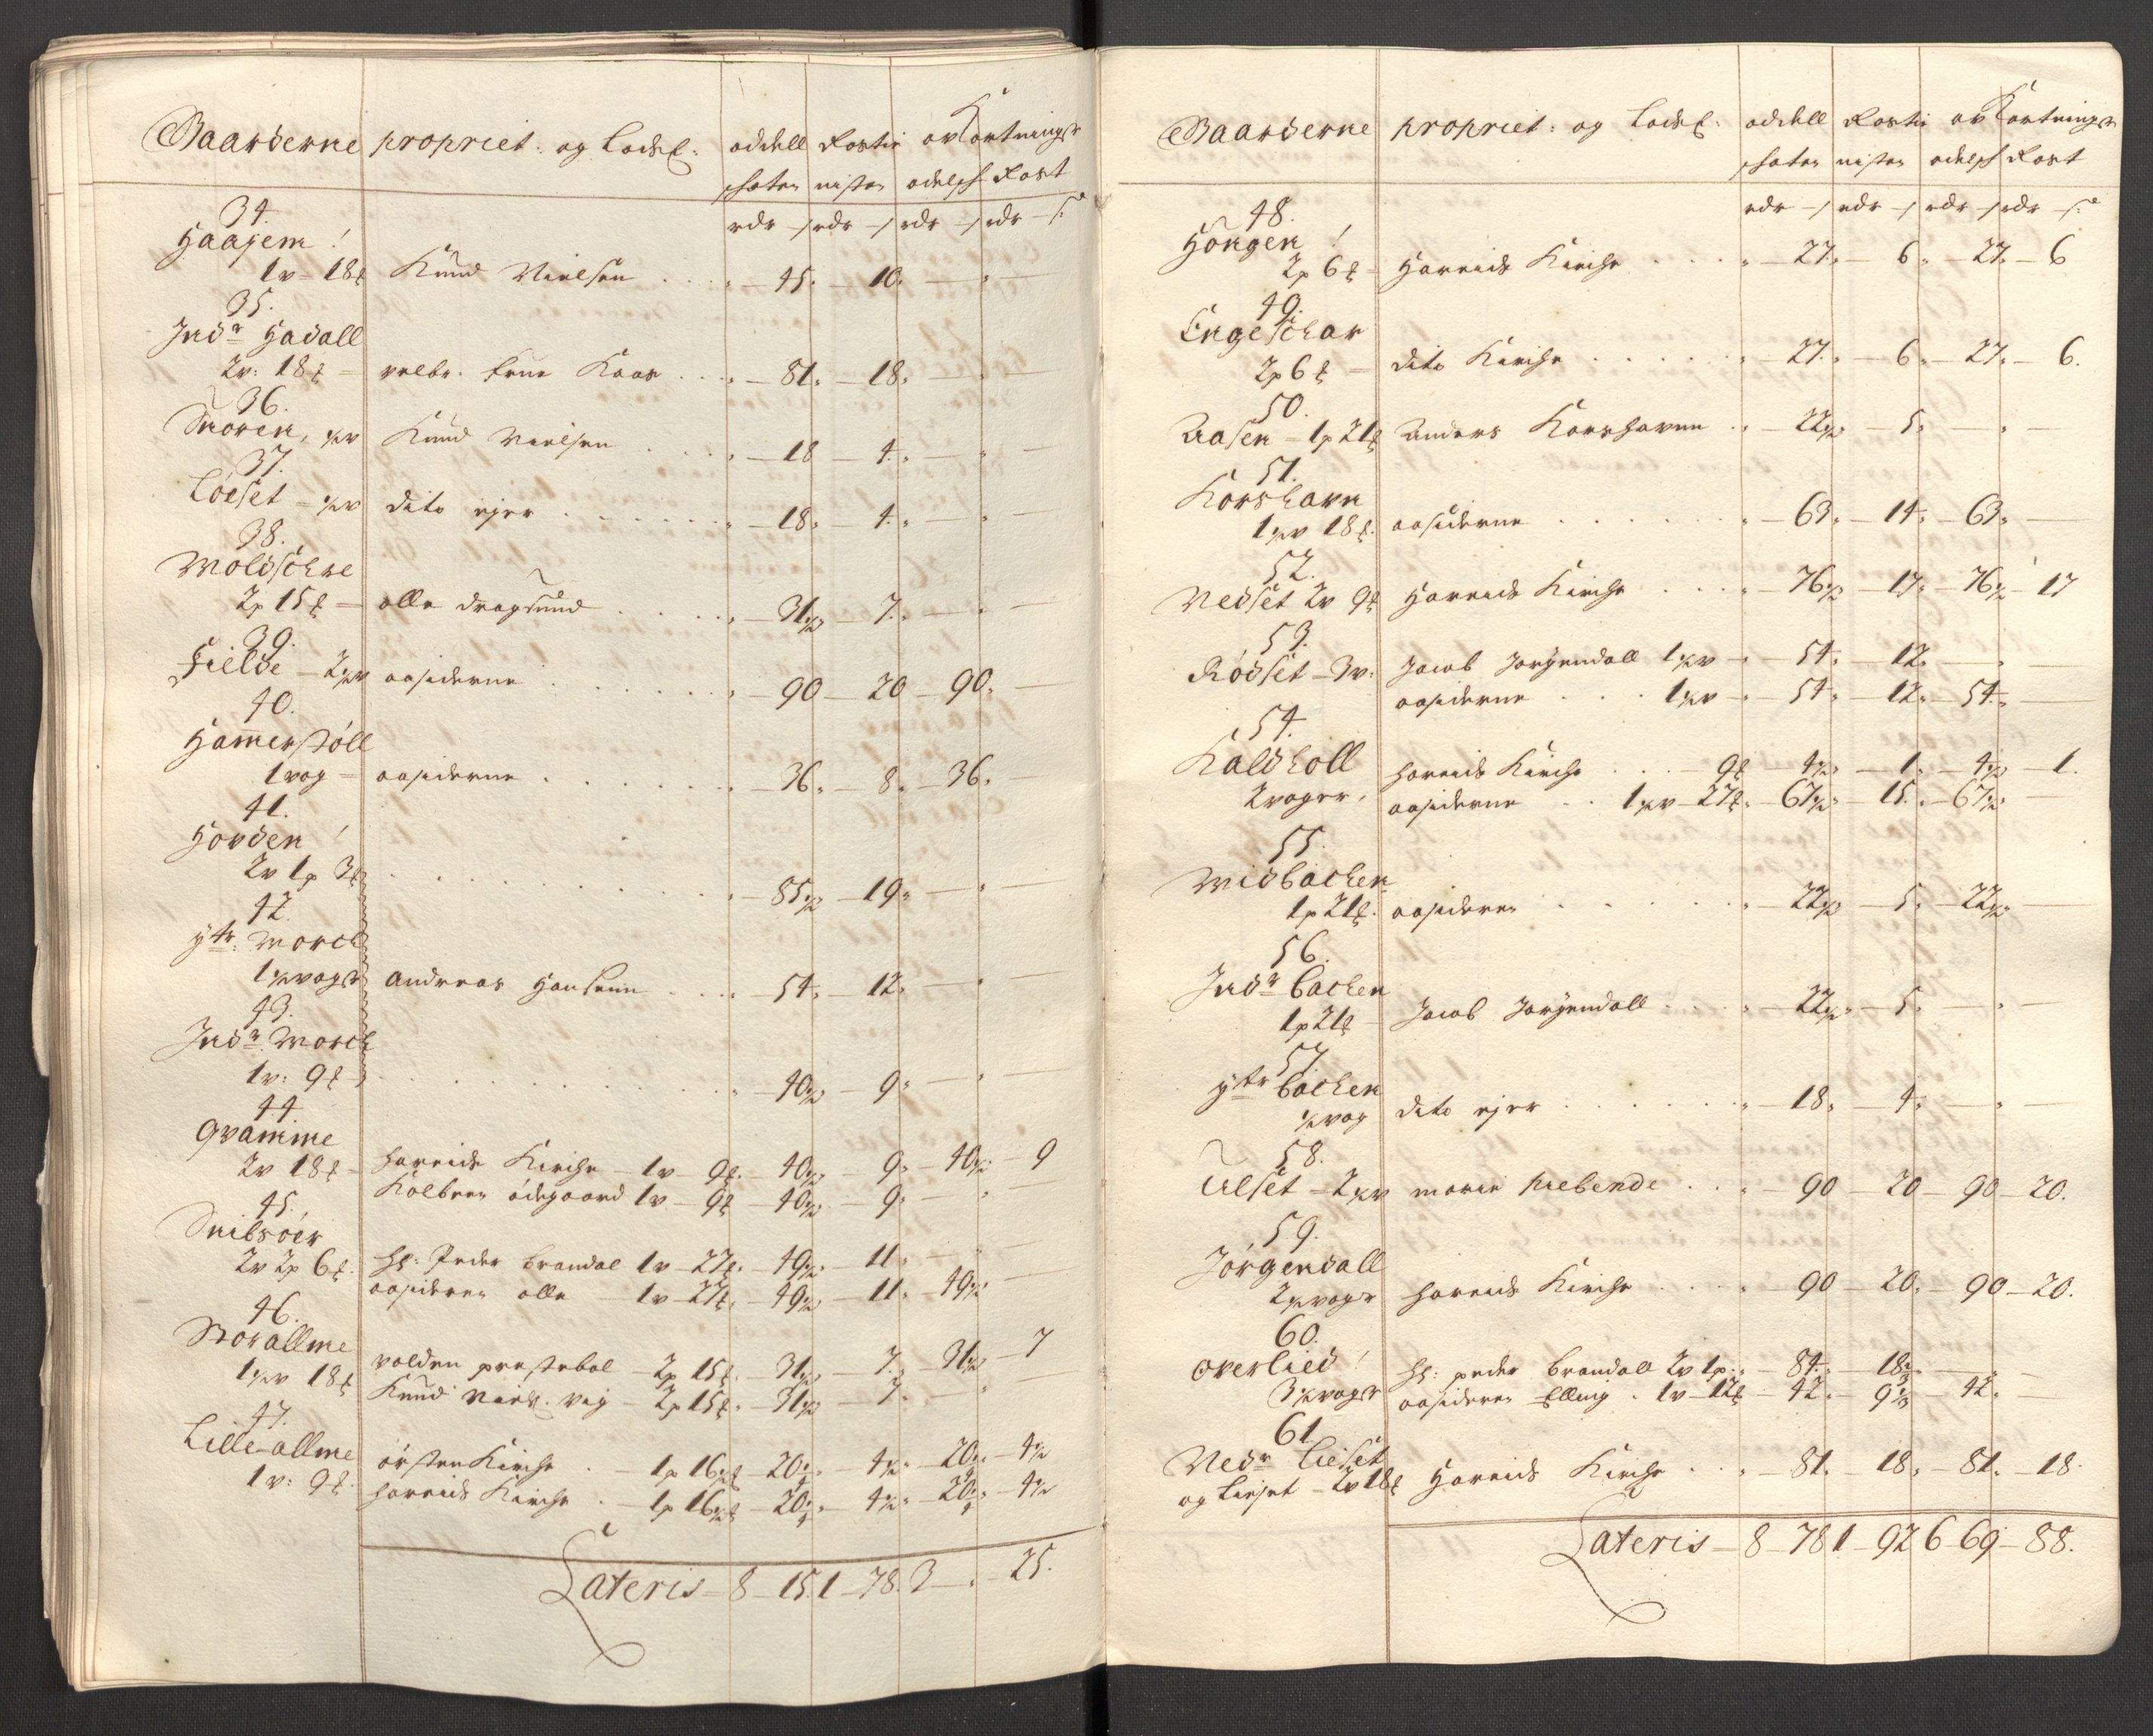 Gaarderne propriet: og Lodsf: oddell Rostie avKortninger
schater nister odelsch Rost
rdr – s rdr – s rdr – s rdr – s
34.
Haajem!
1v – 18 Knud Nielsen 45. 10.
35.
Indr Hadall
2v: 18 velbr. frue Kaas 81. 18.
36.
Snoren, ½v Knud Nielsen 18 4.
37.
Löeset – ½v dito ejer 18. 4.
38.
Moldschre
2p 15 olle dragsund 31½ 7.
39.
Fielde – 2½v oasiderne 90 20 90.
40.
Hammerstöll
1 vog oasiderne 36. 8. 36.
41.
Hovden!
2v 1p 3 85½ 19.
42.
ytr: Morch
1½ voger Andreas Hansenn 54. 12.
43.
Indr Morch
1v: 9 40½ 9.
44.
Qvamme
2v 18 Harreids Kirche – 1v 9 40½ 9. 40½ 9
Kolbren ödegaard 1v – 9 40½ 9.
45.
Snibsöer
2v 2p 6 Hr: Peder Brandal 1v – 27 49½ 11.
oasideren olle 1v – 27 49½ 11. 49½
46.
Storallme
1½v 18 volden prestebol 2p 15 31½ 7. 31½ 7
Knud Niels. vig 2p 15 31½ 7.
47.
Lille-allme
1v: 9 örsten Kirche 1p 16½ 20¼ 4½ 20¼ 4½
Harreids Kirche 1p 16½ 20¼ 4½ 20¼ 4½
Lateris – 8 – 15.1 – 78. 3 – . – 25.
Gaarderne propriet: og Lodsf: oddell Rostie avKortninger
schater nister odelsch Rost
rdr – s rdr – s rdr – s rdr – s
48.
Höngen!
2p 6 Harreids Kirche 27. 6. 27. 6
49.
Engeschar
2p 6 dito Kirche 27. 6. 27. 6.
50.
Aasen – 1p 21 Anders Korshavnn 22½ 5.
51.
Korshavn
1½v 18 oasiderne 63. 14. 63.
52.
Nedset 2v 9 Harreids Kirche 76½ 17. 76½ 17
53.
Rödset – 3v: Jacob Jorgendall 1½v 54. 12.
oasiderne 1½v 54. 12. 54.
54.
Kaldholl
2 voger. Harreids Kirche 9 4½ 1. 4½ 1.
oasiderne 1½v – 27 67½ 15. 67½
55.
Midbachen
1p 21 oasideren 22½ 5. 22½
56.
Indr bachen
1p 21 Jacob Jorgendall 22½ 5.
57.
ytr bachen
½ vog dito ejer 18. 4.
58.
Ulset – 2½v marie prebende 90 20 90 20.
59.
Jörgendall
2½ voger Harreids Kirche 90 20. 90 20.
60.
overlied!
3½ voger Hr: peder Brandall 2v 1p: 84. 18⅔
oasideren Elling. 1v – 12 42. 9⅓ 42.
61
Nedr Lieset
og Liesetr – 2v 18 Harreids Kirche 81. 18. 81. 18.
Lateris – 8 – 78 1 – 92 6 – 69 – 88.